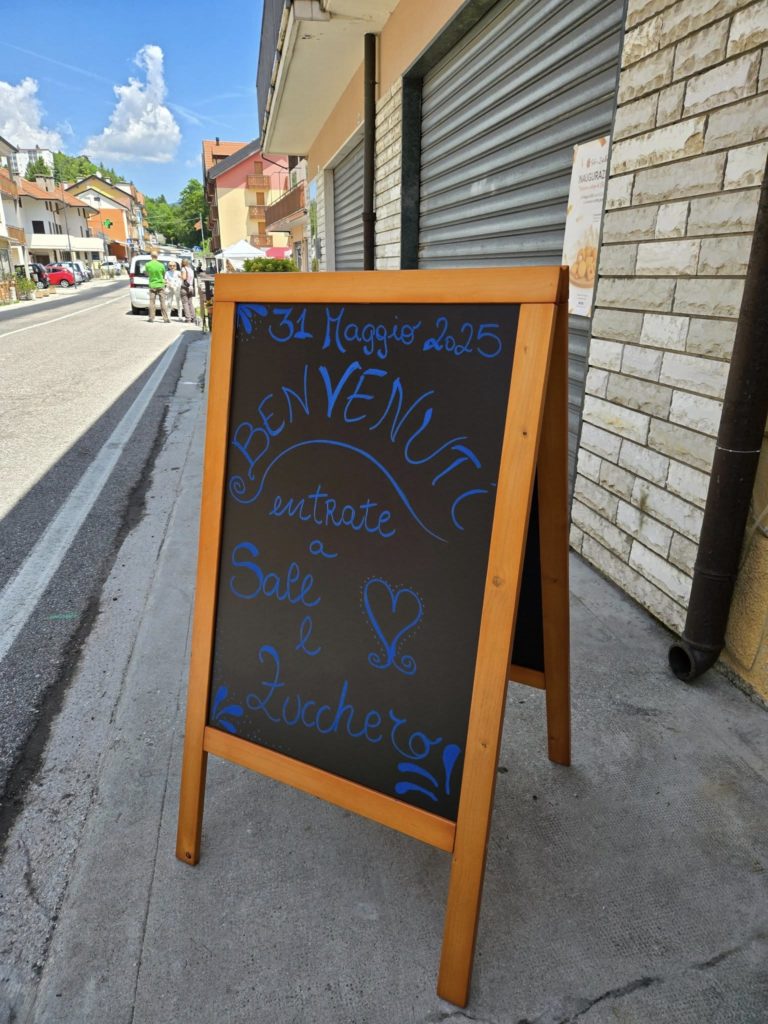 31 Maggio 2025
BENVENUTI
entrate
a
Sale
e
Zucchero
INAUGURAZ